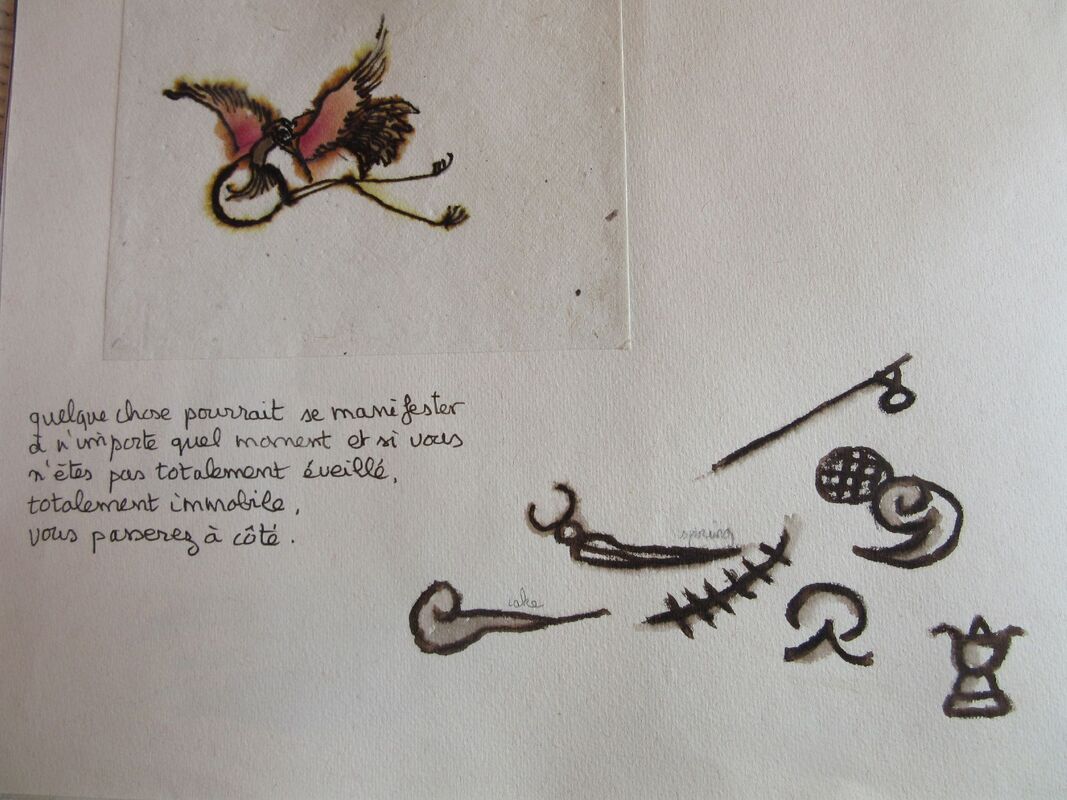 quelque chose pourrait se manifester
à n'importe quel moment et si vous
n'êtes pas totalement éveillé,
totalement immobile,
vous passerez à côté.
spring
cake